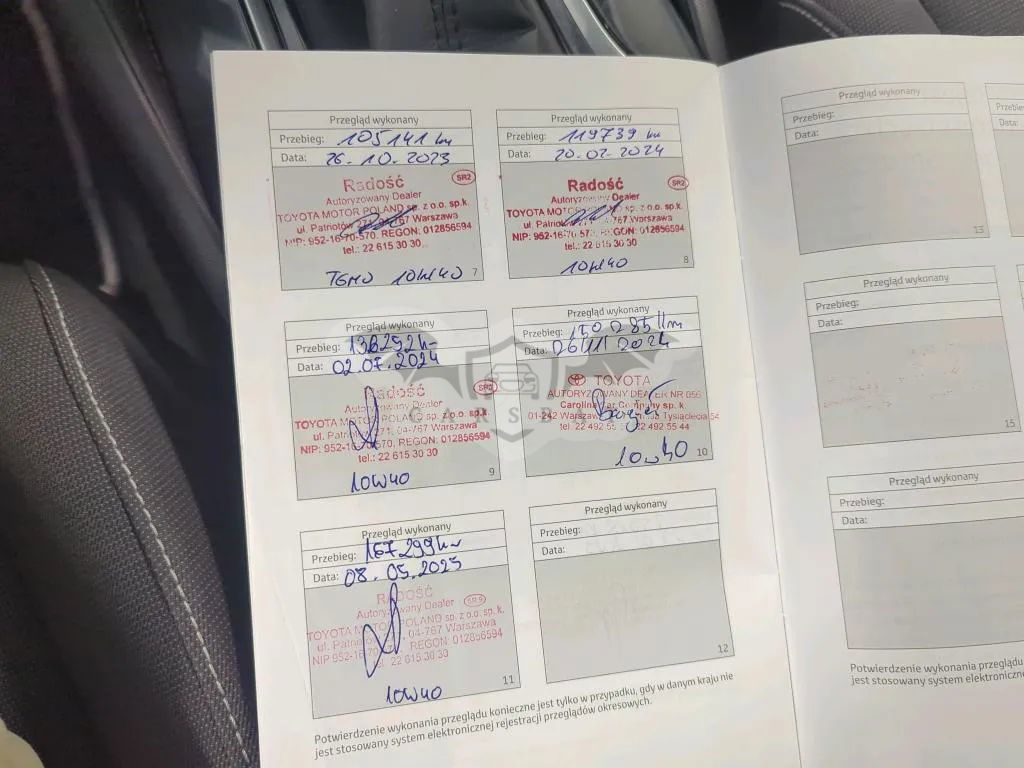 Przegląd wykonany
Przebieg: 105141 km
Data: 26.10.2023
Radość
SR2
Autoryzowany Dealer
TOYOTA MOTOR POLAND sp. z o.o. sp.k.
ul. Patriotów 04-767 Warszawa
NIP: 952-16-70-570, REGON: 012856594
tel.: 22 615 30 30
10W40
7
Przegląd wykonany
Przebieg: 119739 km
Data: 20.02.2024
Radość
SR2
Autoryzowany Dealer
TOYOTA MOTOR POLAND sp. z o.o. sp.k.
ul. Patriotów 04-767 Warszawa
NIP: 952-16-70-570, REGON: 012856594
tel.: 22 615 30 30
10W40
8
Przegląd wykonany
Przebieg:
Data: 02.07.2024
Radość
Autoryzowany Dealer
TOYOTA MOTOR POLAND sp. z o.o. sp.k.
ul. 04-767 Warszawa
NIP: 952-16-70-570, REGON: 012856594
tel.: 22 615 30 30
10W40
9
Przegląd wykonany
Przebieg: 150285 km
Data: 26/11/2024
TOYOTA
AUTORYZOWANY DEALER NR 056
Carolina Car Company sp. k.
01-242 Tysiąclecia
tel. 22 492 55 44
10W40
10
Przegląd wykonany
Przebieg: 167299 km
Data: 08.05.2025
RADOŚĆ
Autoryzowany Dealer
TOYOTA MOTOR POLAND sp. z o.o. sp.k.
ul. 04-767 Warszawa
NIP 952-16-70-570, REGON: 012856594
tel.: 22 615 30 30
10W40
11
Przegląd wykonany
Przebieg:
Data:
12
Potwierdzenie wykonania przeglądu konieczne jest tylko w przypadku, gdy w danym kraju nie
jest stosowany system elektronicznej rejestracji przeglądów okresowych.
Przegląd wykonany
Przebieg:
Data:
13
Przebieg:
Data:
Przegląd wykonany
Przebieg:
Data:
15
Przegląd wykonany
Przebieg:
Data:
Potwierdzenie wykonania przeglądu
jest stosowany system elektroniczne